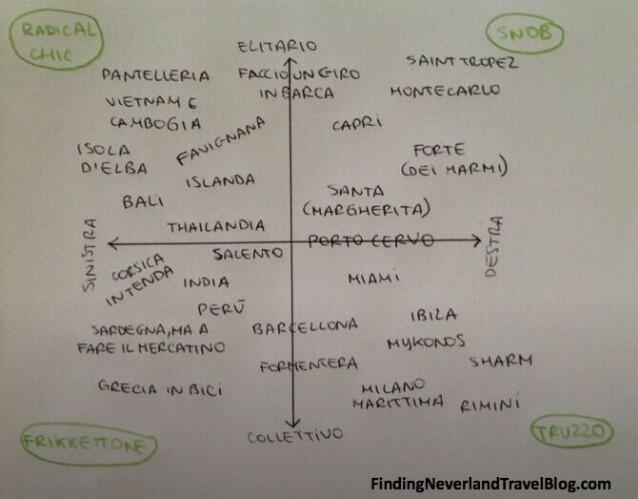 RADICAL
CHIC
SNOB
ELITARIO
PANTELLERIA
FACCIO UN GIRO
IN BARCA
SAINT TROPEZ
VIETNAM E
CAMBOGIA
MONTECARLO
CAPRI
FAVIGNANA
ISOLA
D'ELBA
FORTE
(DEI MARMI)
ISLANDA
BALI
SANTA
(MARGHERITA)
THAILANDIA
SINISTRA
PORTO CERVO
DESTRA
SALENTO
CORSICA
IN TENDA
INDIA
MIAMI
PERÙ
SARDEGNA, MA A
FARE IL MERCATINO
BARCELLONA
IBIZA
MYKONOS
FORMENTERA
SHARM
GRECIA IN BICI
MILANO
MARITTIMA
RIMINI
FRIKKETTONE
COLLETTIVO
TRUZZO
FindingNeverlandTravelBlog.com